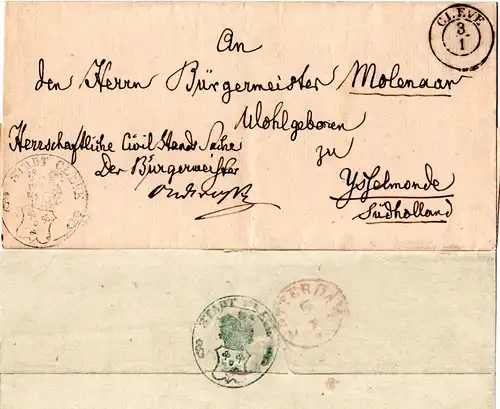 CLEVE
3
1
An
den Herrn Bürgermeister Molenaar
Wohlgeboren
zu
Ysselmonde
Südholland
Herrschaftliche Civil Stands Sache
Der Bürgermeister
STADT CLEVE
STADT CLEVE